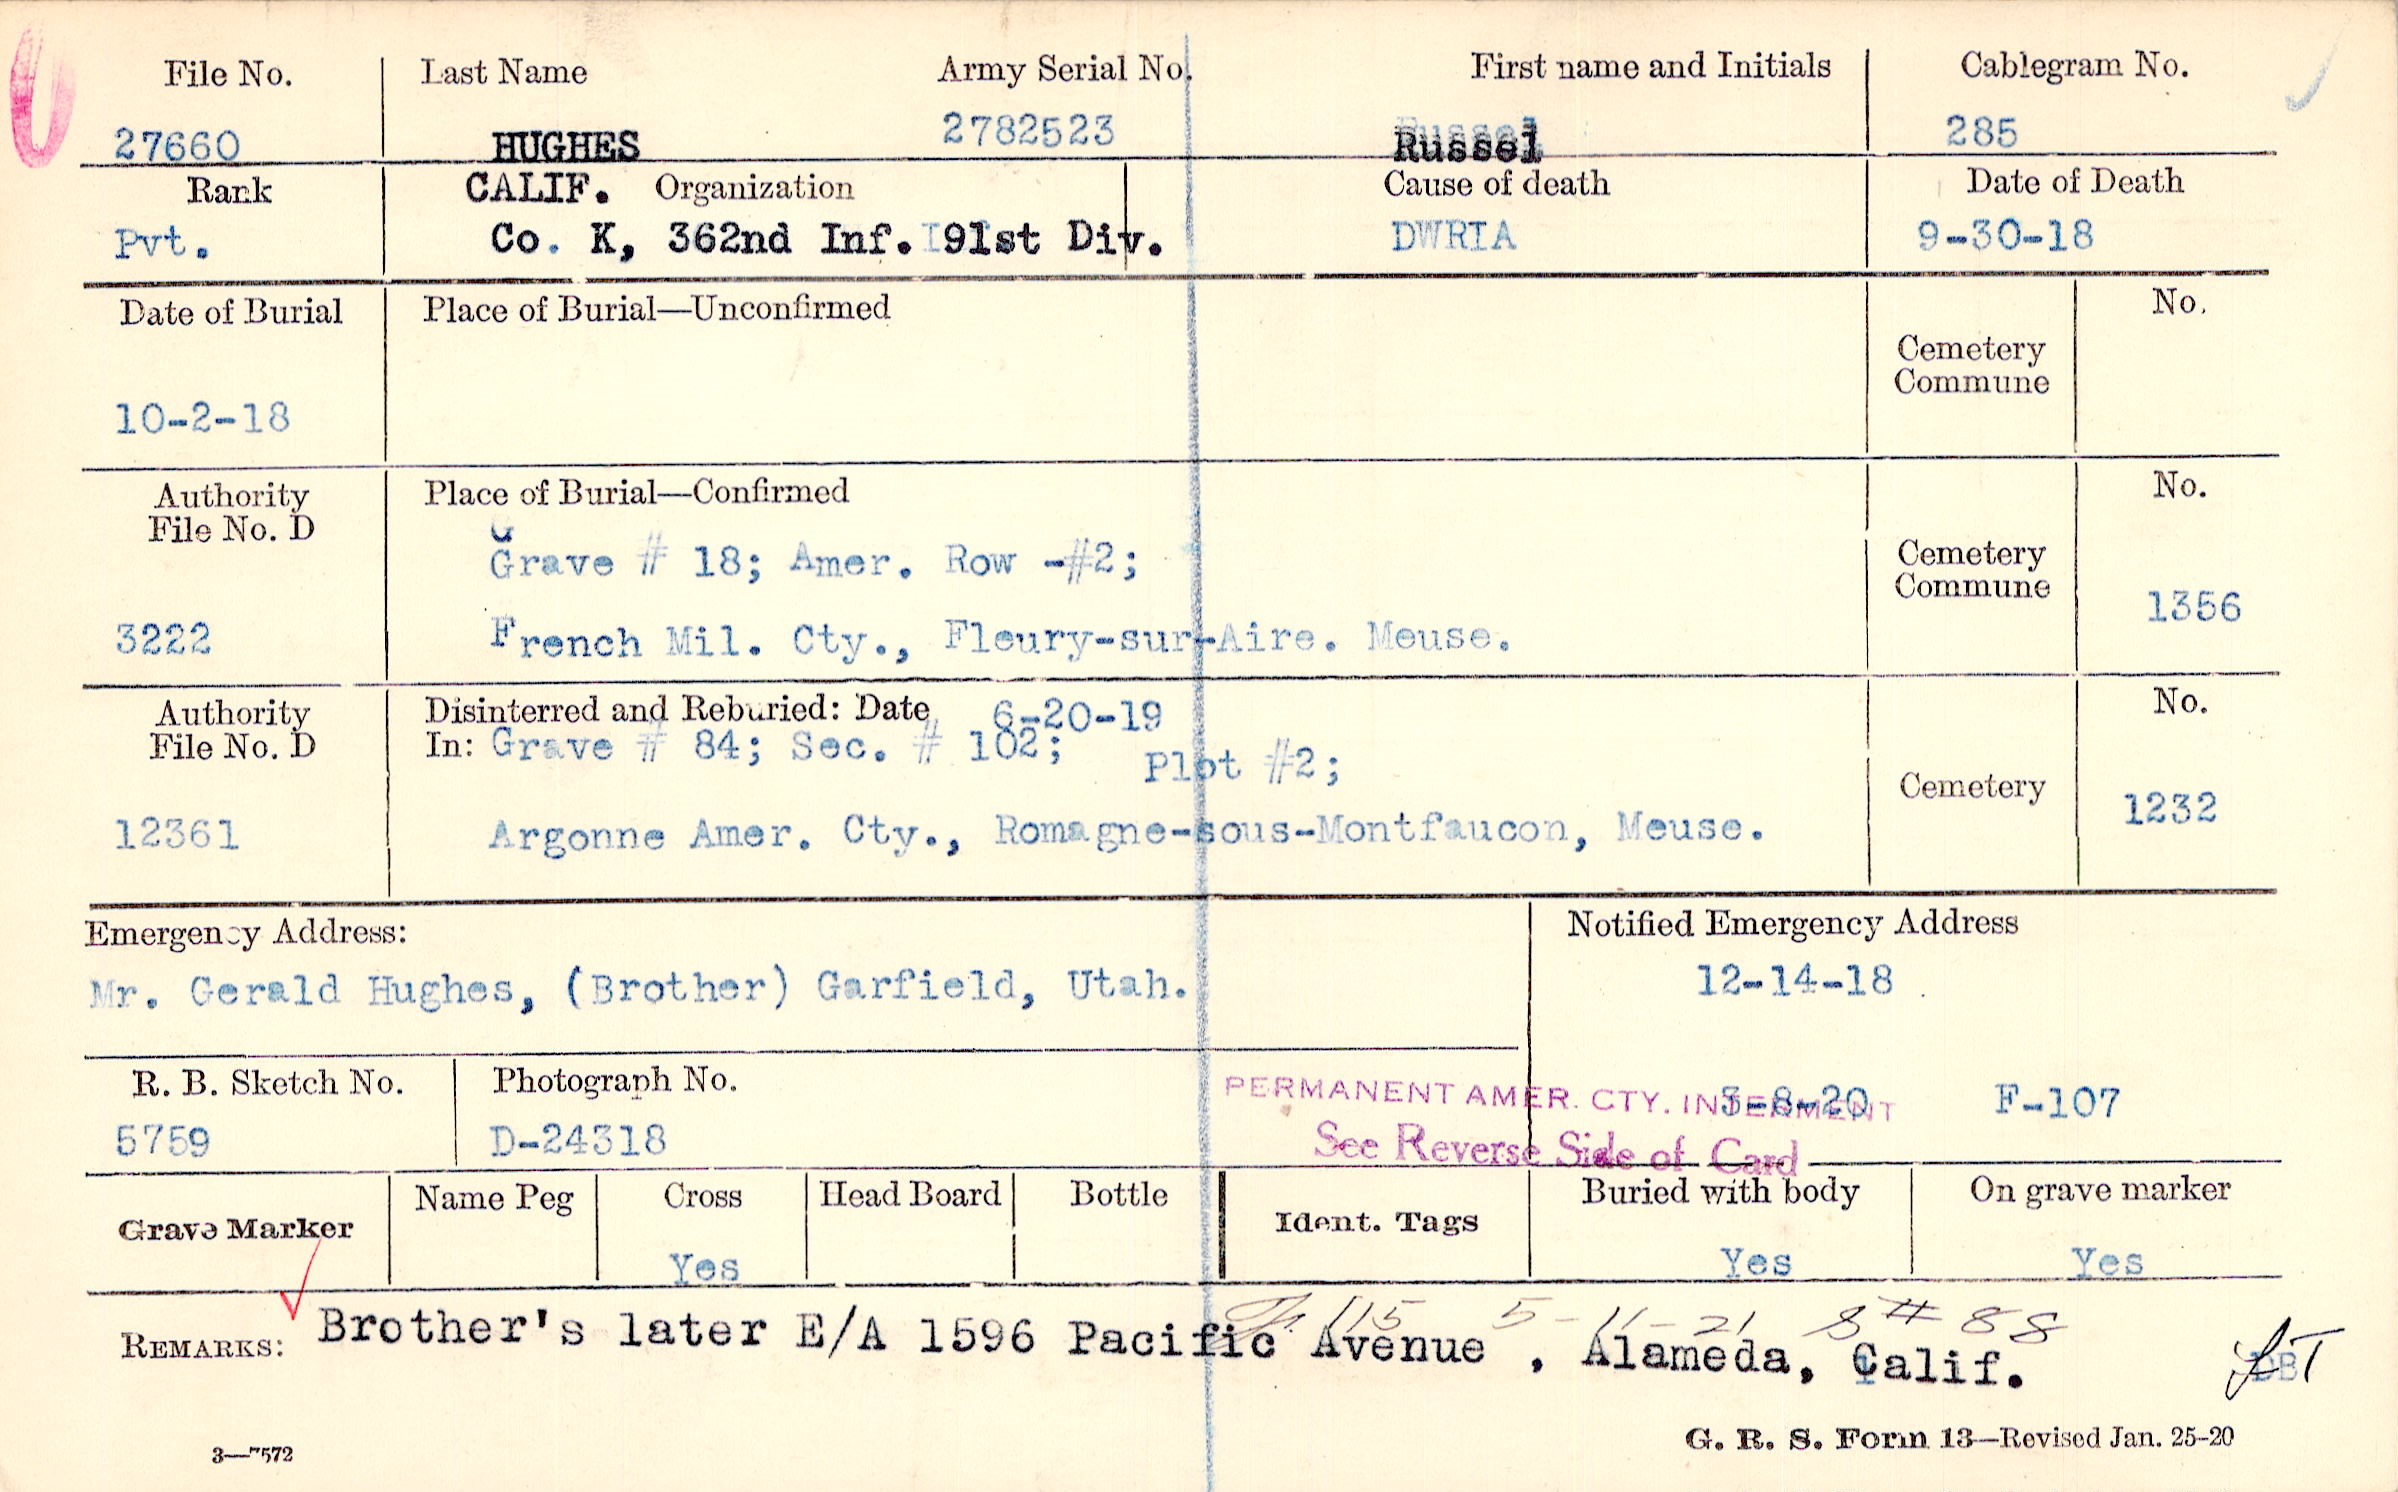 File No. Last Name Army Serial No. First name and Initials Cablegram No.
27660 HUGHES 2782523 Russel 285
Rank CALIF. Organization Cause of death Date of Death
Pvt. Co. K, 362nd Inf. 91st Div. DWRIA 9-30-18
Date of Burial Place of Burial—Unconfirmed No.
Cemetery
Commune
10-2-18
Authority Place of Burial—Confirmed No.
File No. D
Grave # 18; Amer. Row -#2; Cemetery
Commune 1356
3222 French Mil. Cty., Fleury-sur-Aire. Meuse.
Authority Disinterred and Reburied: Date 6-20-19 No.
File No. D In: Grave # 84; Sec. # 102; Plot #2;
Cemetery
12361 Argonne Amer. Cty., Romagne-sous-Montfaucon, Meuse. 1232
Emergency Address: Notified Emergency Address
Mr. Gerald Hughes, (Brother) Garfield, Utah. 12-14-18
R. B. Sketch No. Photograph No. PERMANENT AMER. CTY. INTERMENT 3-8-20 F-107
5759 D-24318 See Reverse Side of Card
Grave Marker Name Peg Cross Head Board Bottle Ident. Tags Buried with body On grave marker
Yes Yes Yes
115 5-11-21 S# 88
REMARKS: Brother's later E/A 1596 Pacific Avenue , Alameda, Calif. DB
3—7572 G. R. S. Form 13—Revised Jan. 25-20